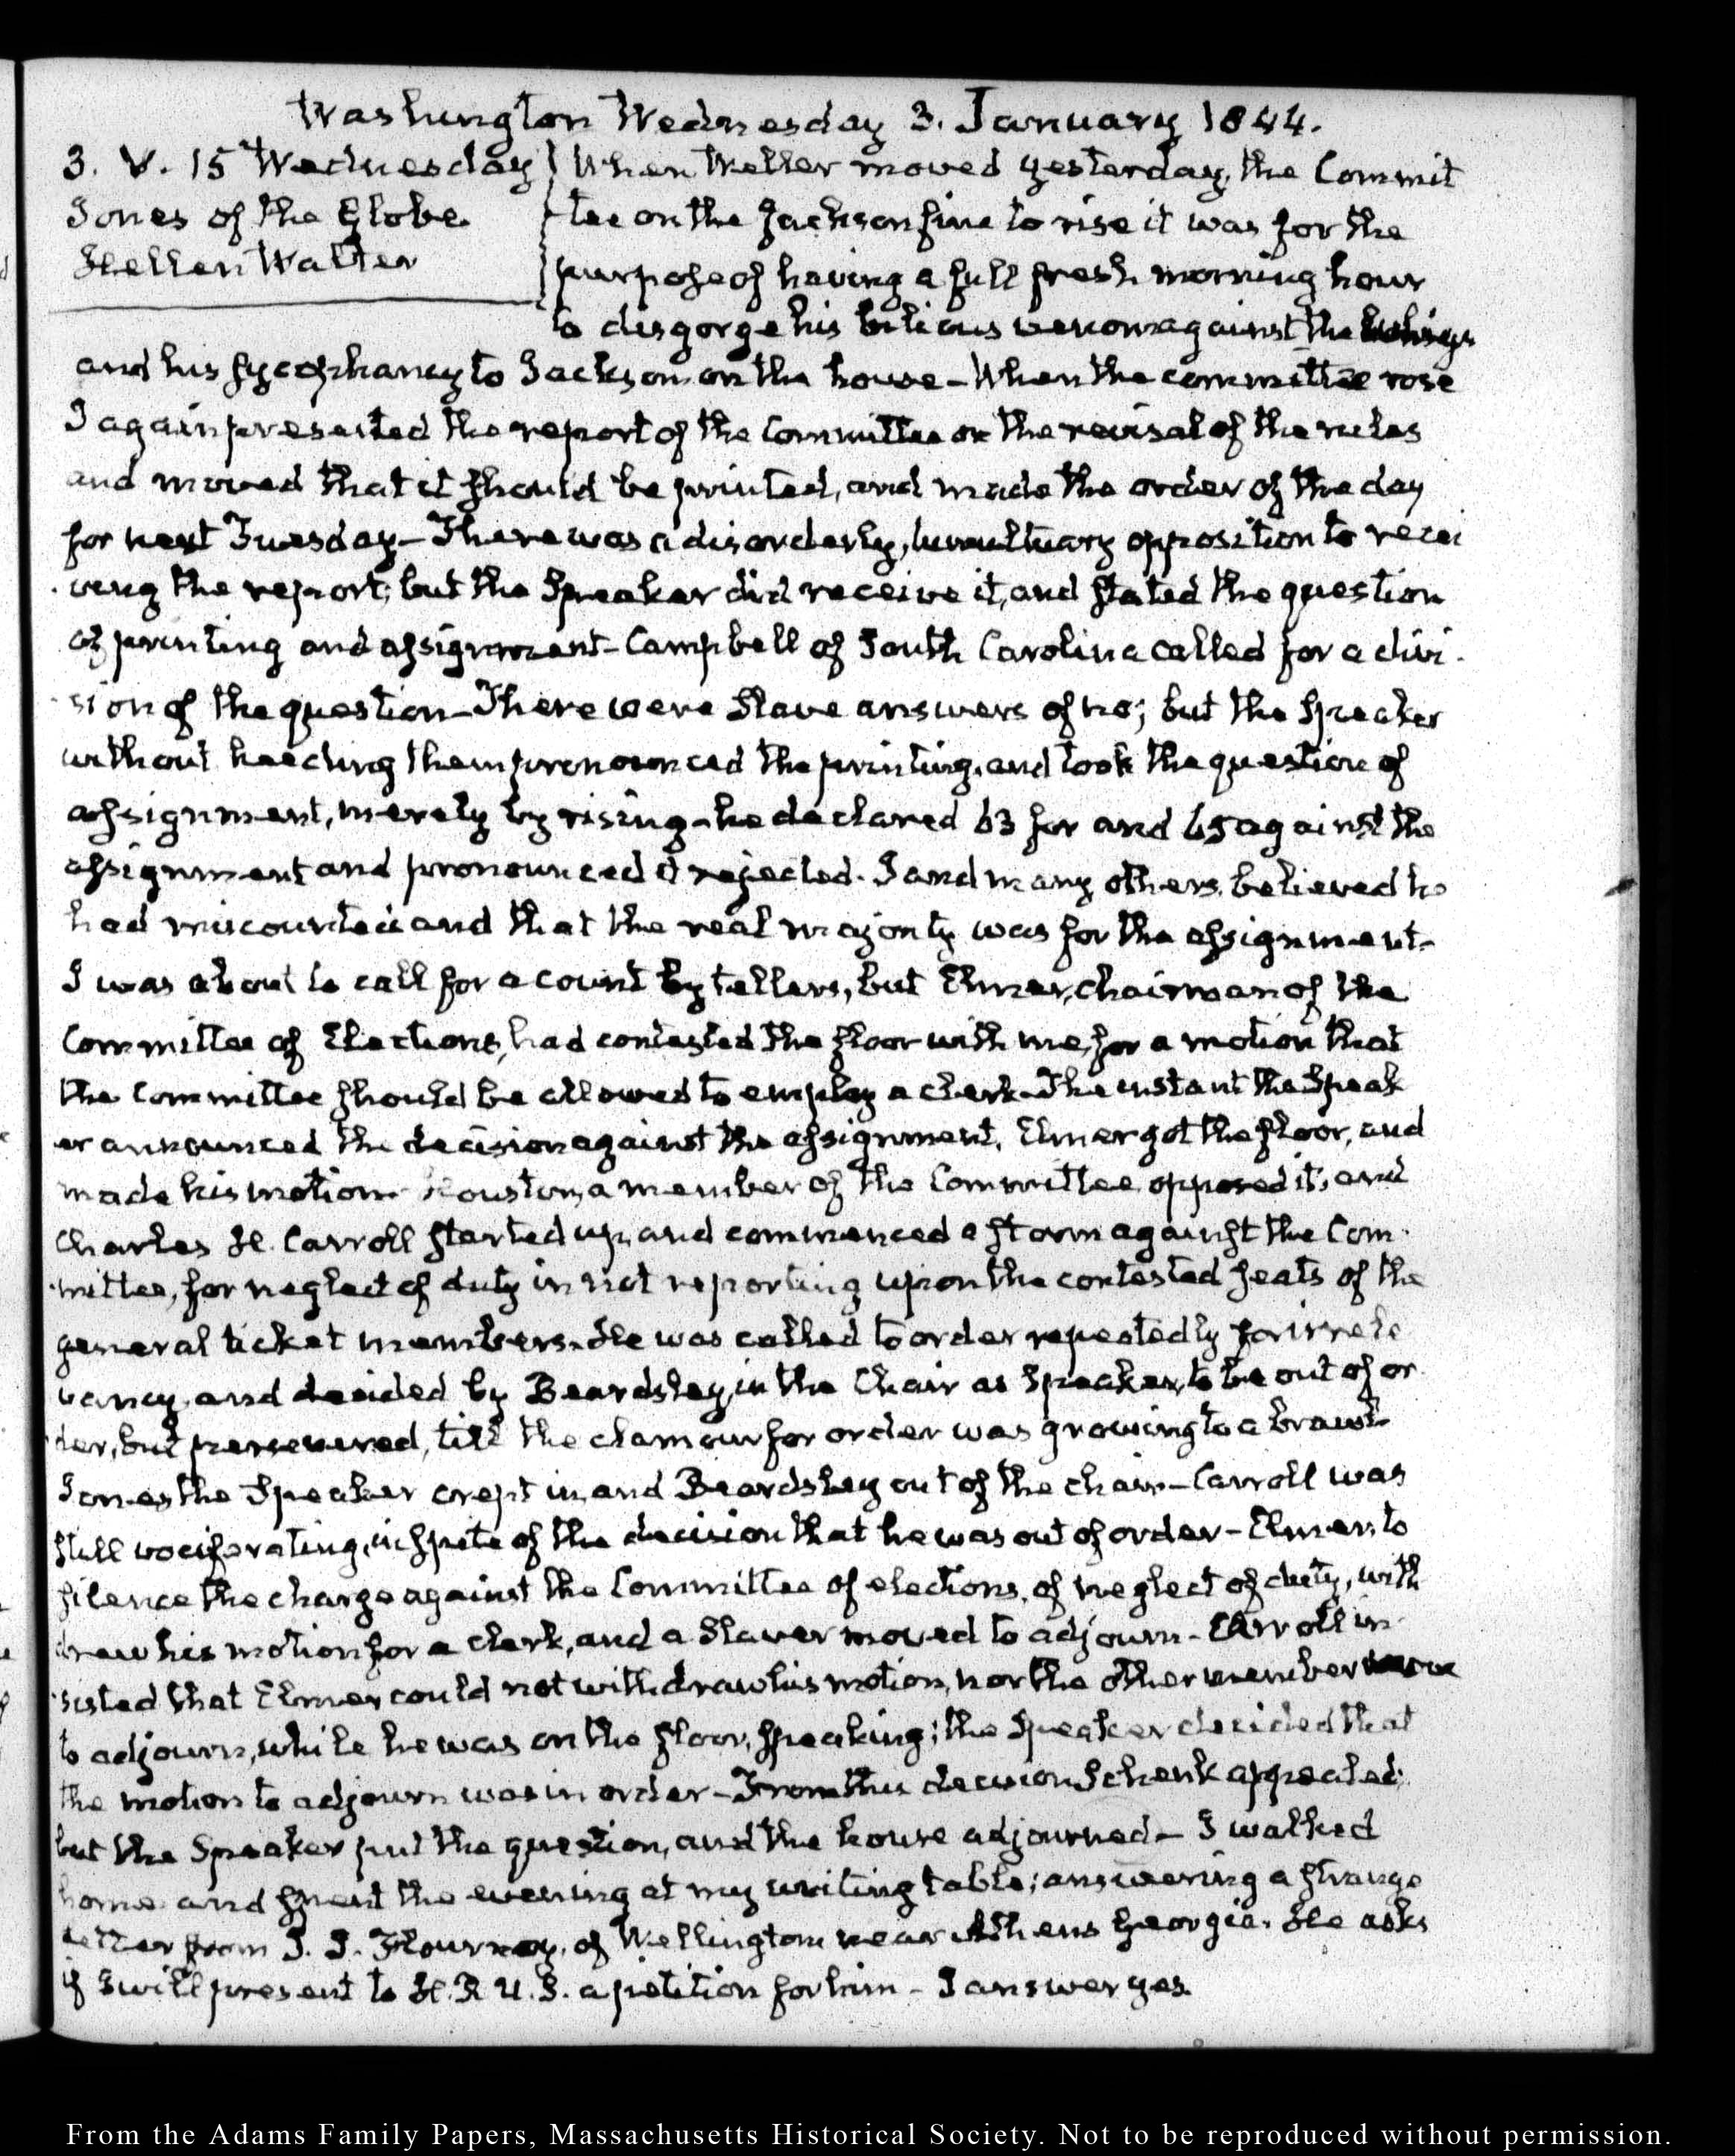 Washington Wednesday 3. January 1844.
3. V. 15 Wednesday
Jones of the Globe
Hellen Walter
When Weller moved yesterday, the Commit
tee on the Jackson fine to rise it was for the
purpose of having a full fresh morning hour
to disgorge his bilious venom against the
and his sycophancy to Jackson on the house – When the committee rose
I again presented the report of the Committee on the revisal of the rules
and moved that it should be printed, and made the order of the day
for next Tuesday – There was a disorderly, tumultuary opposition to recei
ving the report; but the Speaker did receive it, and stated the question
of printing and assignment – Campbell of South Carolina called for a divi-
sion of the question – There were Slave answers of no; but the Speaker
without heeding them pronounced the printing, and took the question of
assignment, merely by rising – he declared 63 for and 65 against the
assignment and pronounced it rejected. I and many others, believed he
had miscounted and that the real majority was for the assignment –
I was about to call for a count by tellers, but Elmer, chairman of the
Committee of Elections, had contested the floor with me, for a motion that
the Committee should be allowed to employ a clerk – The instant the Speak
er announced the decision against the assignment, Elmer got the floor, and
made his motion – Houston, a member of the Committee opposed it, and
Charles H. Carroll started up, and commenced a storm against the Com-
mittee, for neglect of duty in not reporting upon the contested seats of the
general ticket members. He was called to order repeatedly for irrele
vancy, and decided by Beardsley, in the Chair as Speaker, to be out of or
der, but persevered, till the clamour for order was growing to a brawl –
Jones the Speaker crept in, and Beardsley out of the chair – Carroll was
still vociferating, in spite of the decision that he was out of order – Elmer, to
silence the charge against the Committee of elections, of neglect of duty, with
drew his motion for a clerk, and a Slaver moved to adjourn – Carroll in-
sisted that Elmer could not withdraw his motion, nor the other member move
to adjourn, while he was on the floor, speaking; the Speaker decided that
the motion to adjourn was in order – From this decision Schenk appealed;
but the Speaker put the question, and the house adjourned – I walked
home and spent the evening at my writing table; answering a strange
letter from J. J. Flournoy, of Wellington near Athens Georgia. He asks
if I will present to H. R U. S. a petition for him – I answer yes.
From the Adams Family Papers, Massachusetts Historical Society. Not to be reproduced without permission.